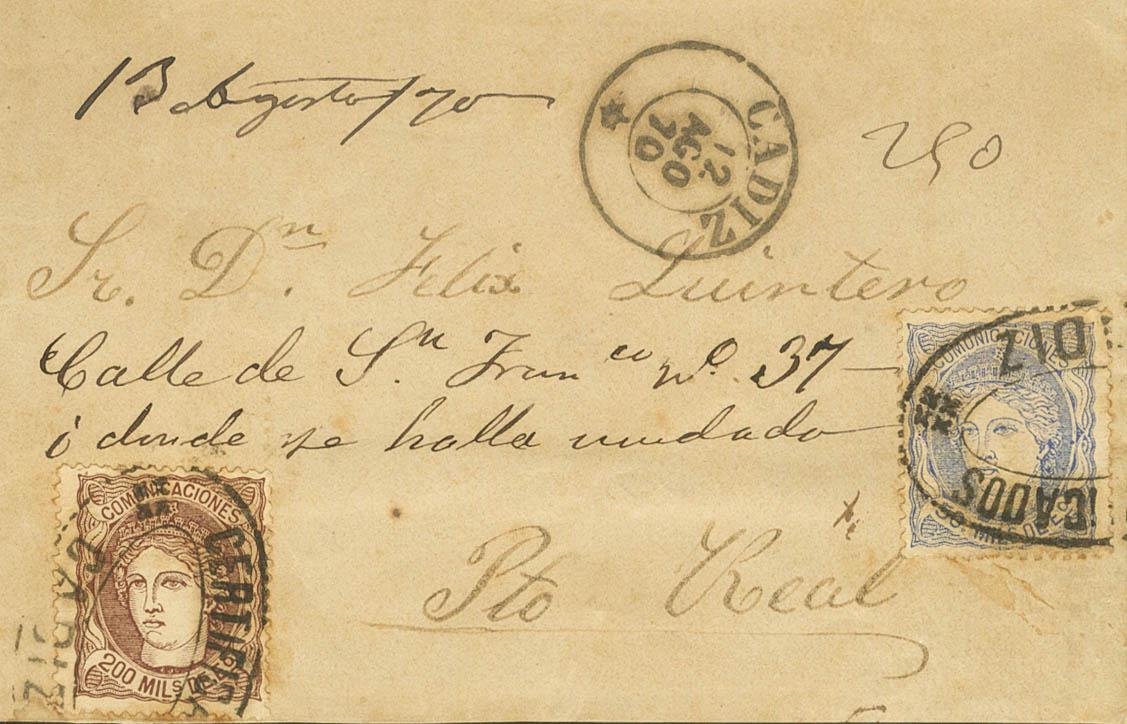 13 Agosto/70
CADIZ
12
AGO
70
250
Sr. Dn. Felix Quintero
Calle de Sn. Franco No. 37
i donde se halla mudado
Pto Real
COMUNICACIONES
DIZ
CADOS
COMUNICACIONES
200 MILS DE
CERTIFIC